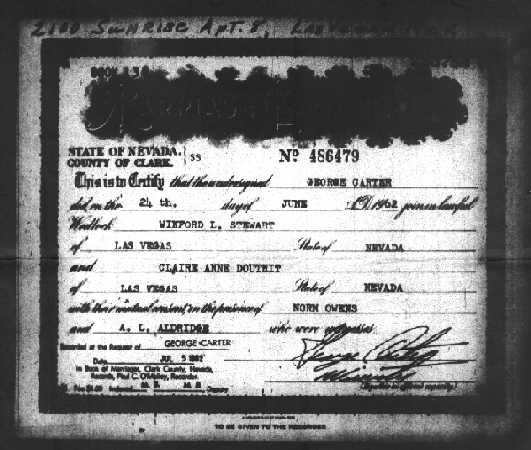 2100 Sunrise Apt. 8,
STATE OF NEVADA,
COUNTY OF CLARK. } SS
No 486479
This is to Certify that the undersigned GEORGE CARTER
did on the 24 th. day of JUNE A.D. 1962 join in lawful
Wedlock WINFORD L. STEWART
of LAS VEGAS State of NEVADA
and CLAIRE ANNE DOUTHIT
of LAS VEGAS State of NEVADA
with their mutual consent, in the presence of NORM OWENS
and A. L. ALDRIDGE who were witnesses
Recorded at the Request of GEORGE CARTER
Date JUL 5 1962
in Book of Marriages, Clark County, Nevada,
Records, Paul C. O'Malley, Recorder.
George Carter
Minister
TO BE GIVEN TO THE RECORDER